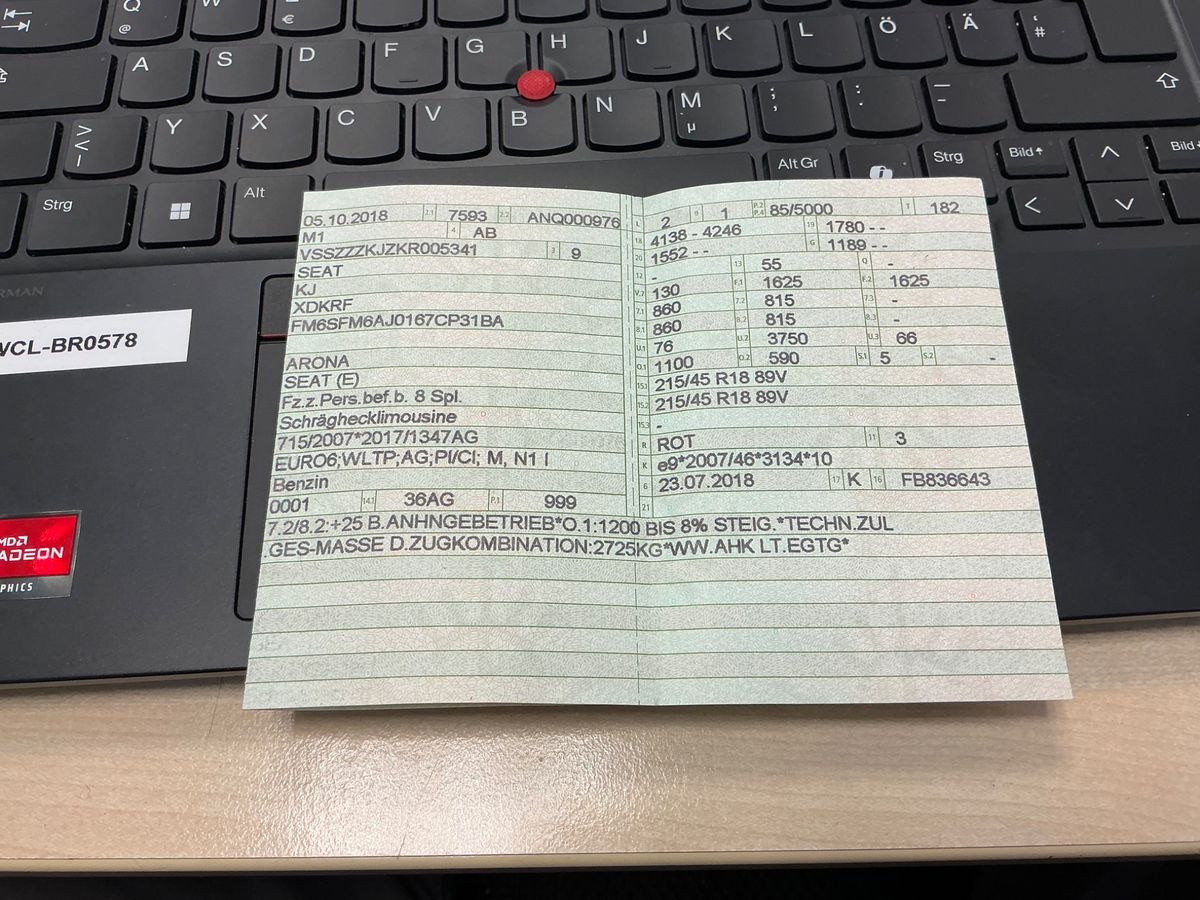 Q
W
@
€
A S D F G H J K L Ö Ä #
'
>
<
|
Y X C V B N M ; : _
µ , . -
Strg Alt Alt Gr Strg Bild Bild
RMAN
WCL-BR0578
AMD
RADEON
GRAPHICS
05.10.2018 2.1 7593 2.2 ANQ000976
M1 4 AB
VSSZZZKJZKR005341 3 9
SEAT
KJ
XDKRF
FM6SFM6AJ0167CP31BA
ARONA
SEAT (E)
Fz.z.Pers.bef.b. 8 Spl.
Schräghecklimousine
715/2007*2017/1347AG
EURO6;WLTP;AG;PI/CI; M, N1 I
Benzin
0001 14.1 36AG P.1 999
L 2 9 1 P.2 P.4 85/5000 T 182
18 4138 - 4246 19 1780 - -
20 1552 - - G 1189 - -
12 - 13 55 Q -
V.7 130 F.1 1625 F.2 1625
7.1 860 7.2 815 7.3 -
8.1 860 8.2 815 8.3 -
U.1 76 U.2 3750 U.3 66
O.1 1100 O.2 590 S.1 5 S.2 -
15.1 215/45 R18 89V
15.2 215/45 R18 89V
15.3 -
R ROT 11 3
K e9*2007/46*3134*10
6 23.07.2018 17 K 16 FB836643
21
7.2/8.2:+25 B.ANHNGEBETRIEB*O.1:1200 BIS 8% STEIG.*TECHN.ZUL
.GES-MASSE D.ZUGKOMBINATION:2725KG*WW.AHK LT.EGTG*